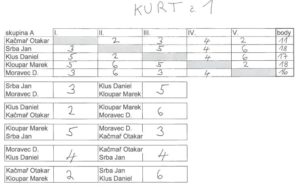 KURT č 1
skupina A I. II. III. IV. V. body
Kačmař Otakar 2 3 4 2 11
Srba Jan 3 5 4 6 18
Klus Daniel 5 2 4 6 17
Kloupar Marek 5 6 5 2 18
Moravec D. 3 6 3 4 16
Srba Jan 3 Klus Daniel 5
Moravec D. Kloupar Marek
Klus Daniel 2 Kloupar Marek 6
Kačmař Otakar Moravec D.
Kloupar Marek 5 Moravec D. 3
Srba Jan Kačmař Otakar
Moravec D. 4 Kačmař Otakar 4
Klus Daniel Srba Jan
Kačmař Otakar 2 Srba Jan 6
Kloupar Marek Klus Daniel